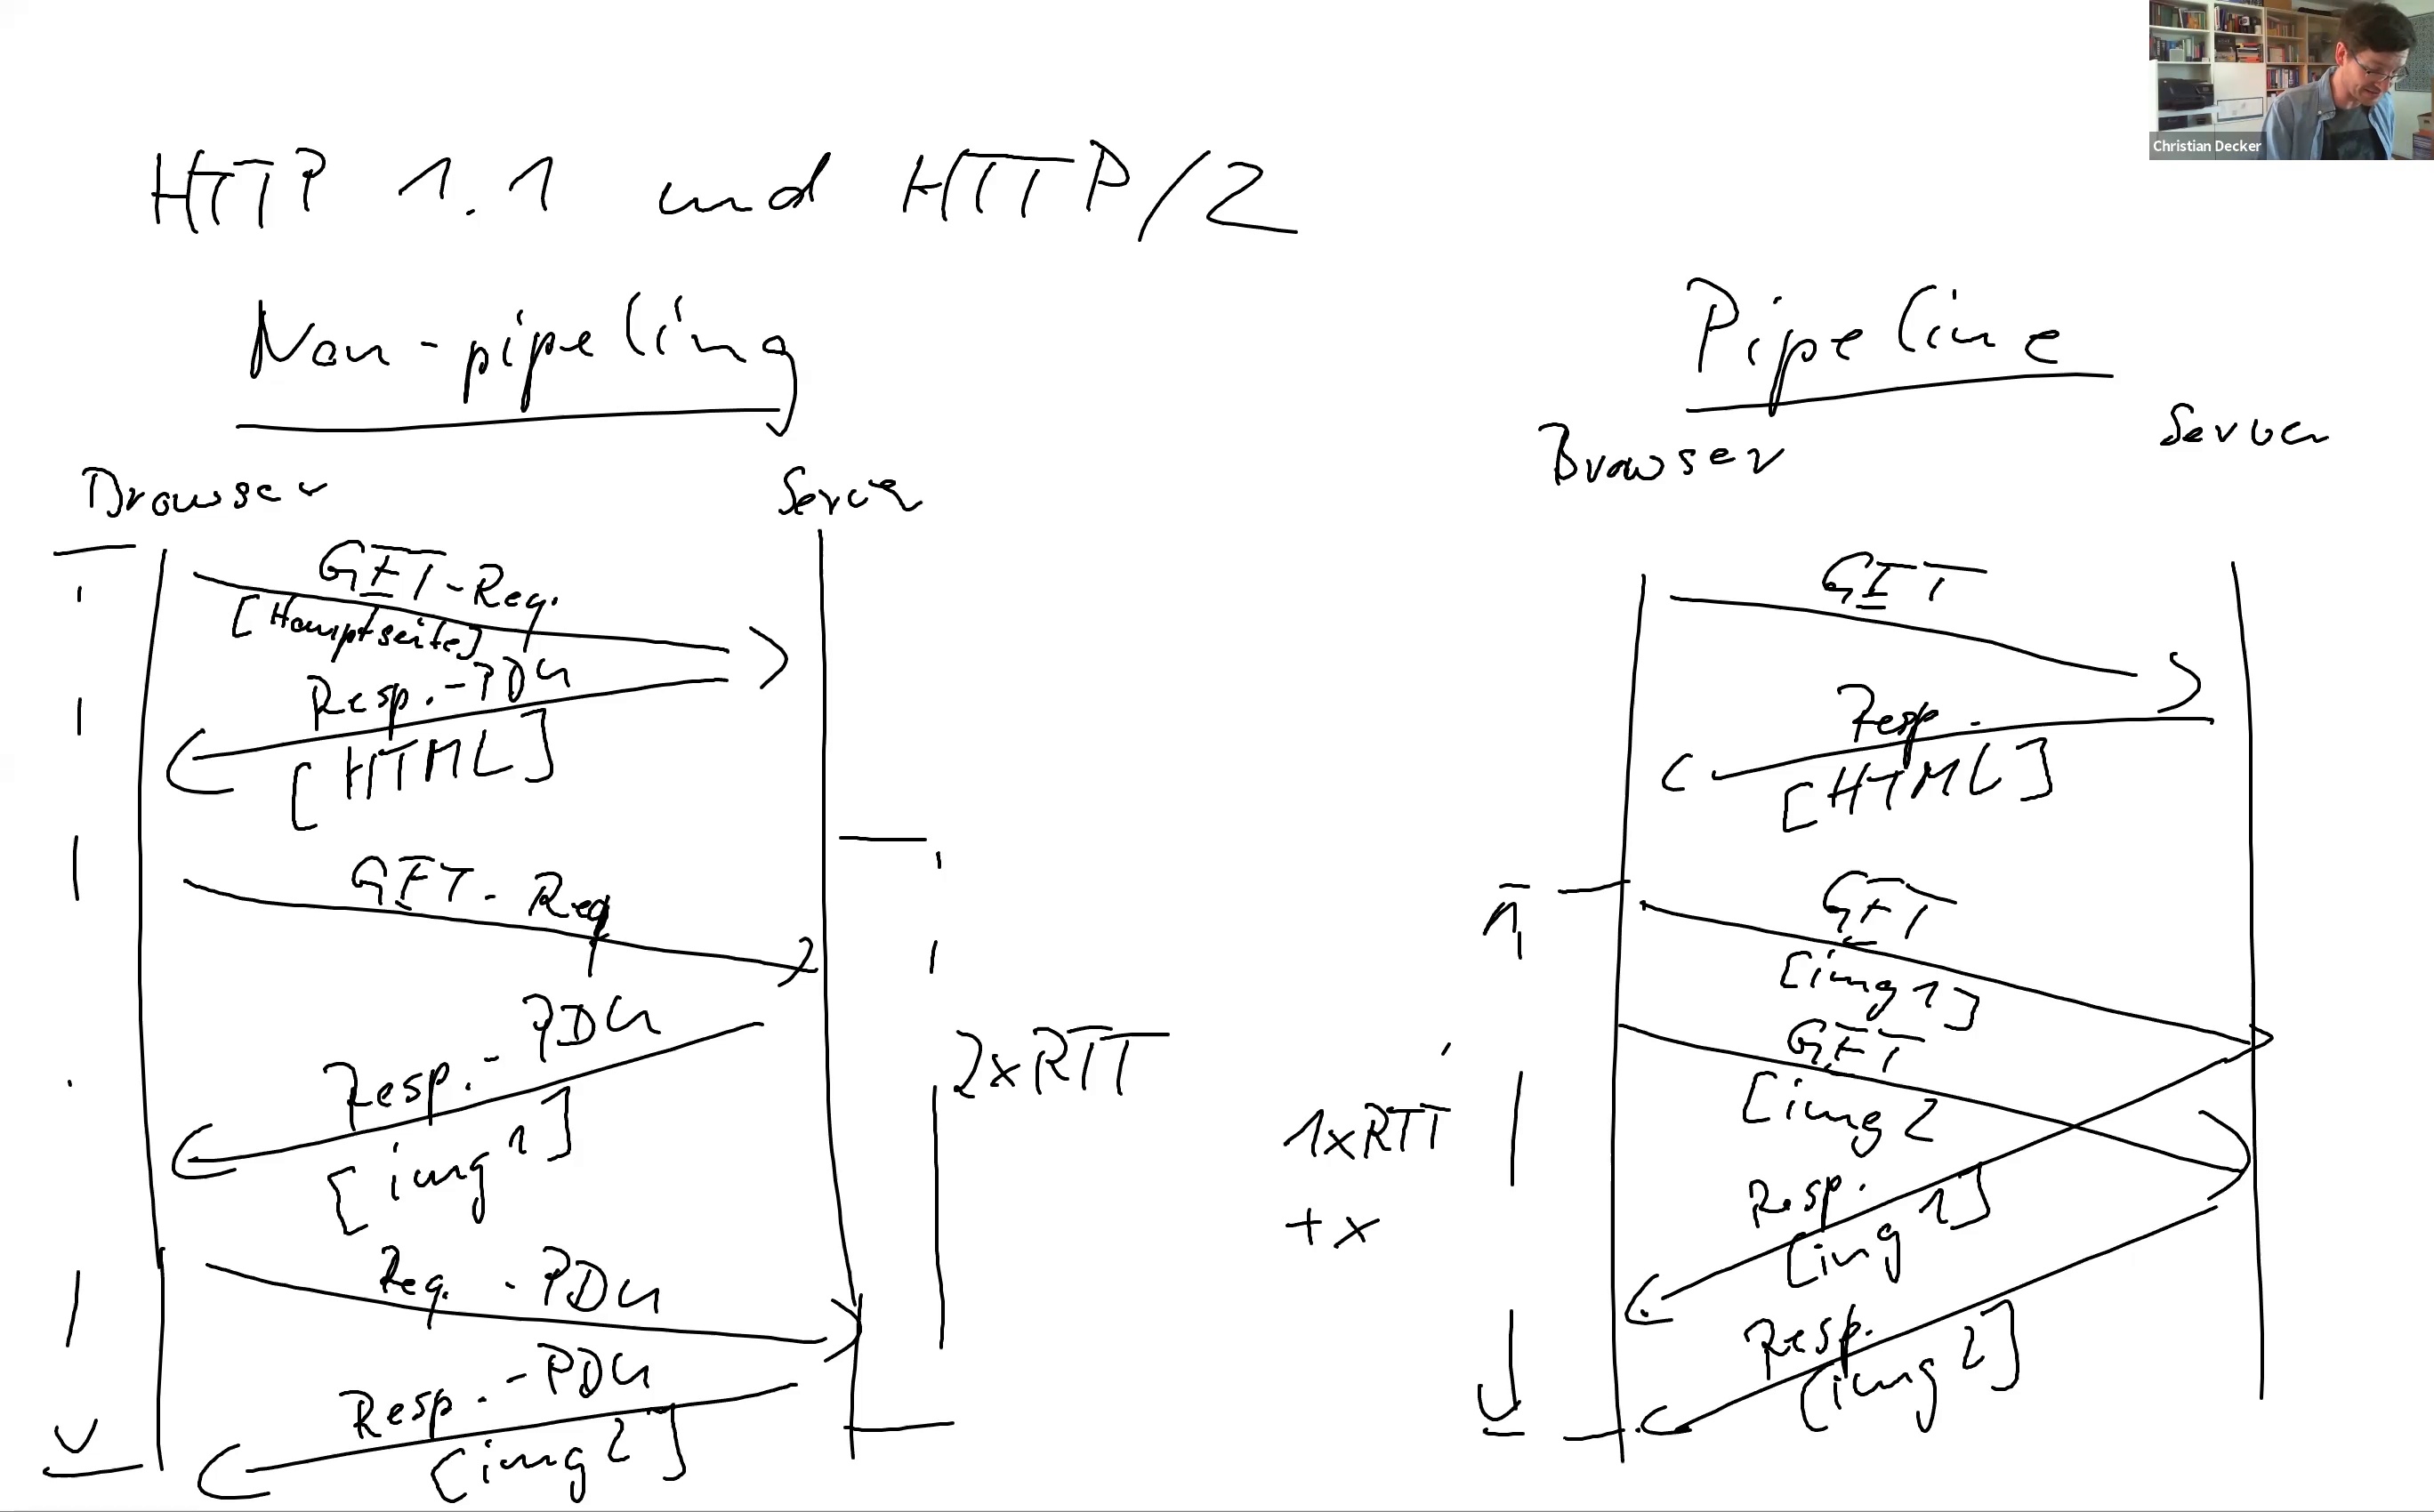 Christian Decker
HTTP 1.1 und HTTP/2
Non-pipelining
Browser
Server
GET-Req.
[Hauptseite]
Resp.-PDU
[HTML]
GET-Req
Resp.-PDU
[img 1]
Req.-PDU
Resp.-PDU
[img 2]
2xRTT
Pipeline
Browser
Server
GET
Resp.
[HTML]
GET
[img 1]
GET
[img 2
Resp.
[img 1]
Resp.
[img 2]
1xRTT
+x